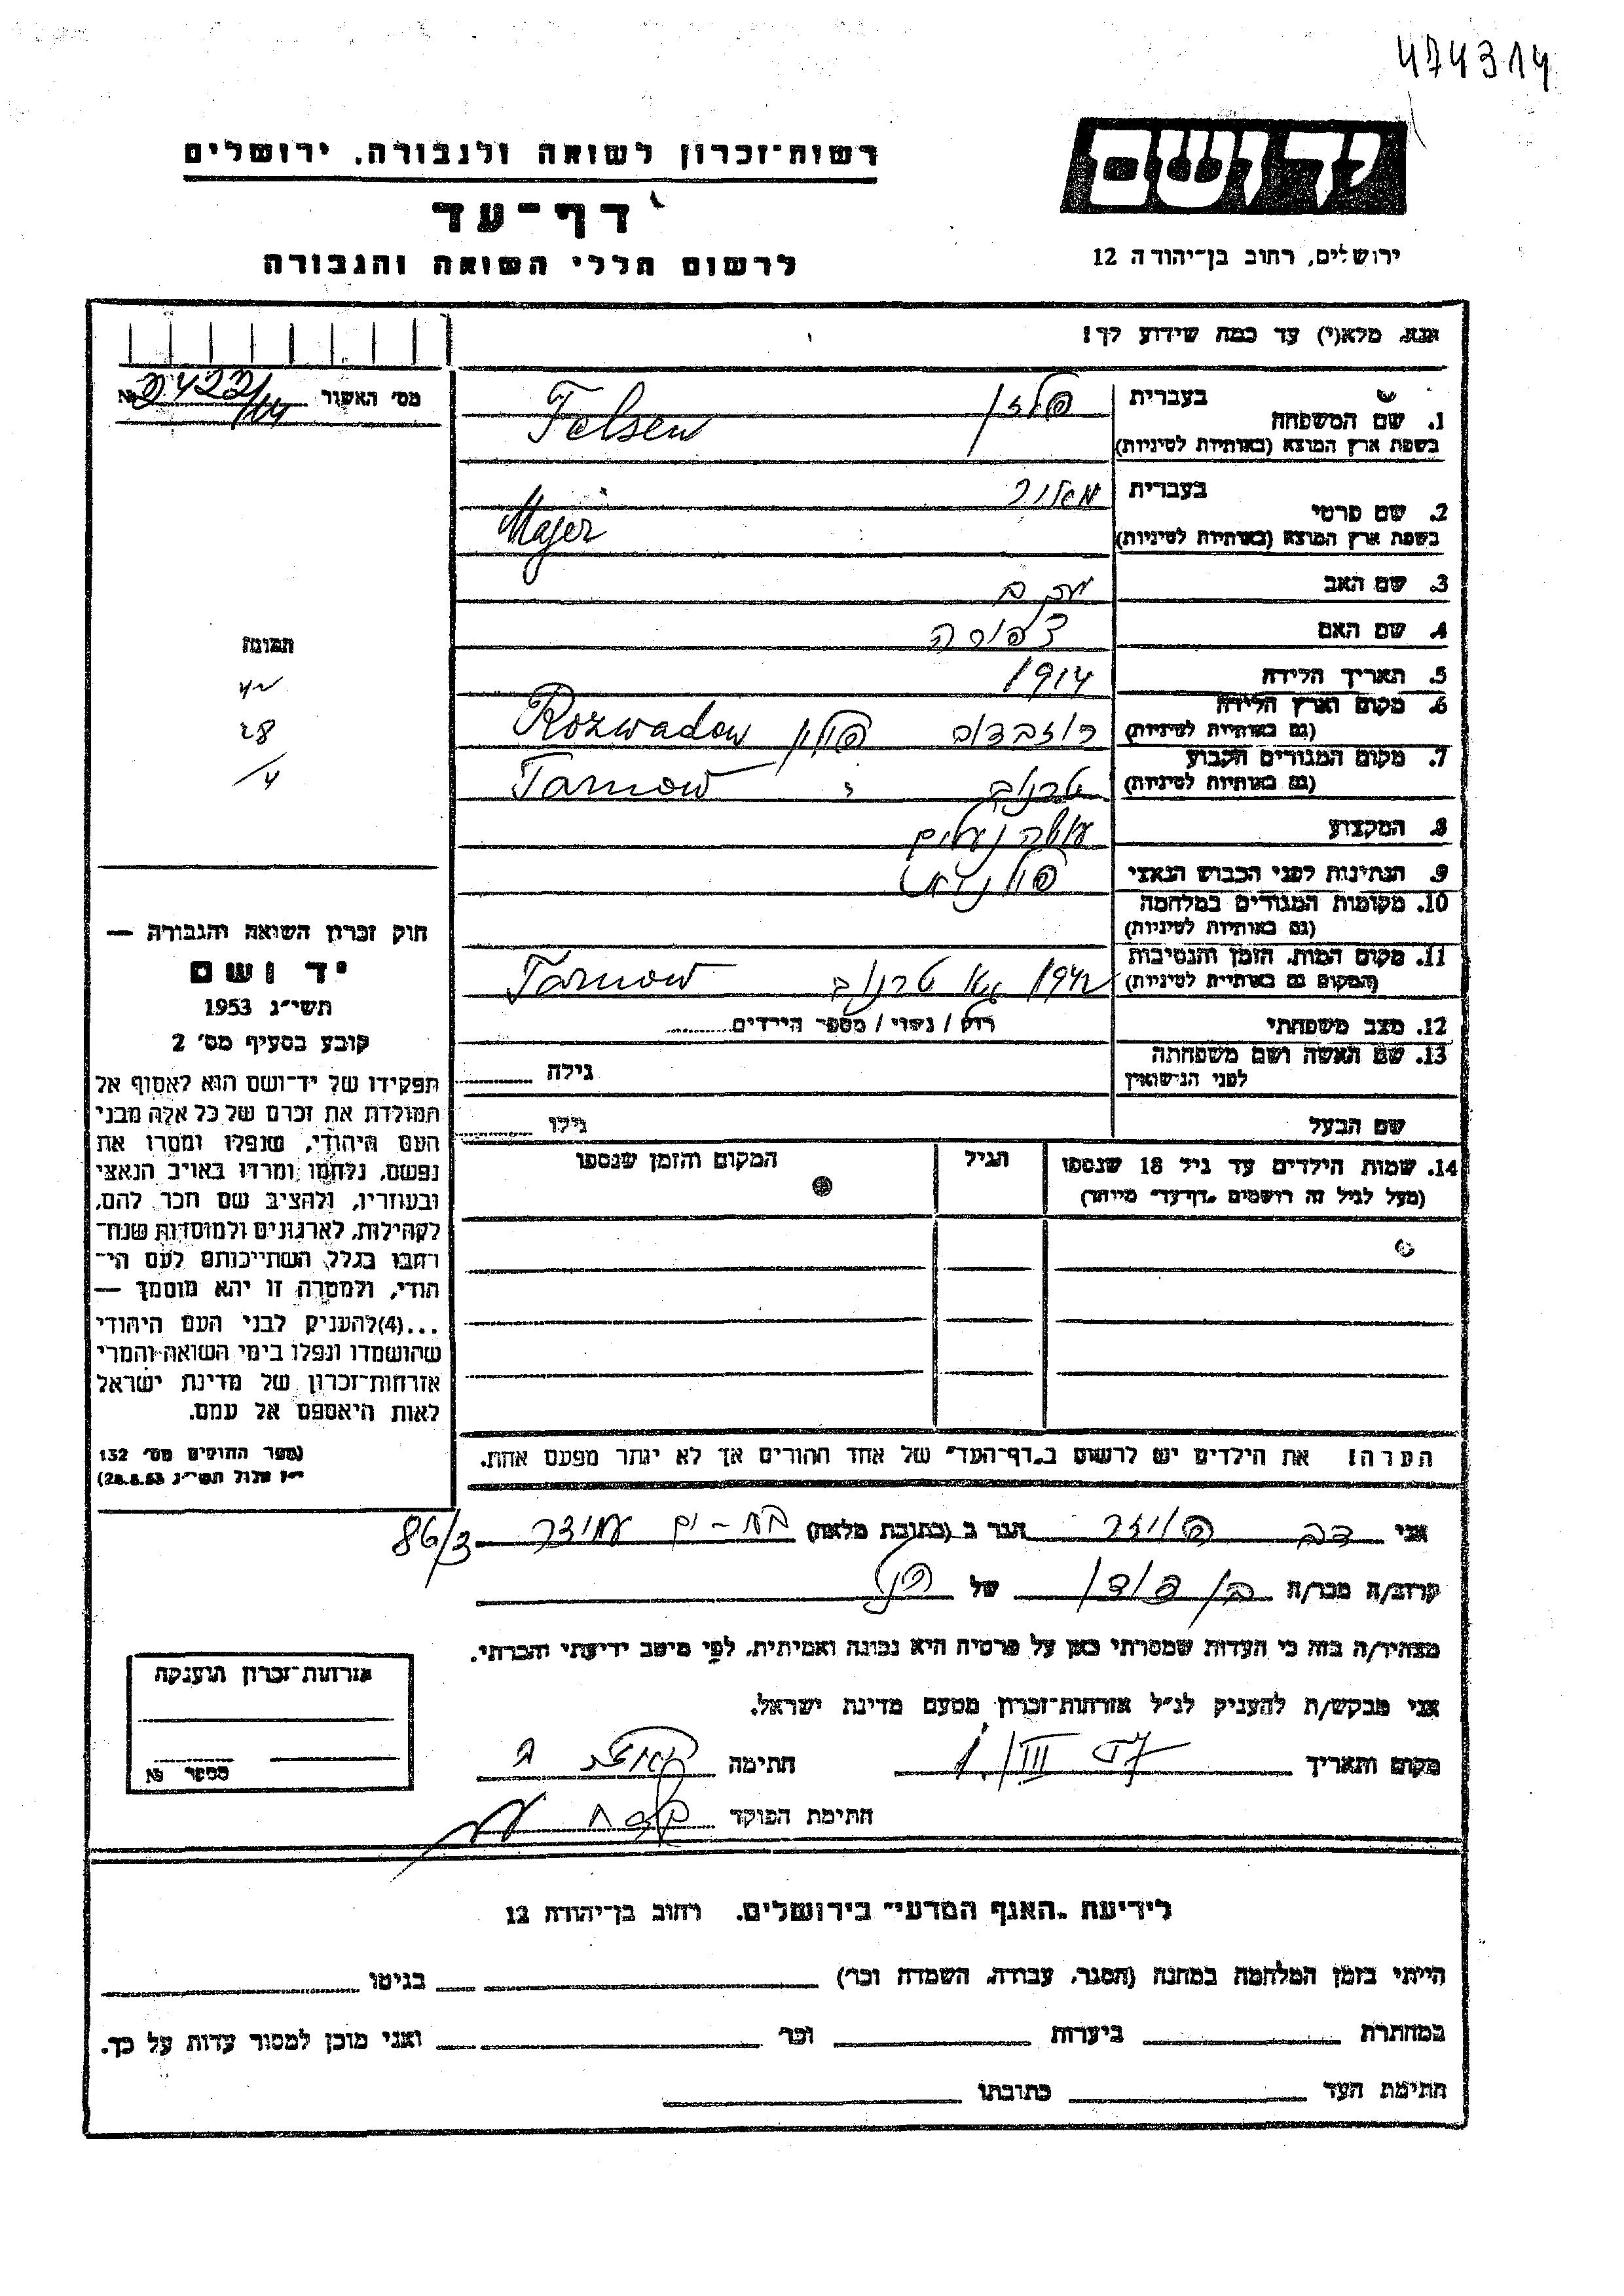 474314
יד ושם
רשות־זכרון לשואה ולגבורה, ירושלים
דף־עד
ירושלים, רחוב בן־יהודה 12
לרשום חללי השואה והגבורה
אנא, מלא(י) עד כמה שידוע לך!
מס׳ האשור
1. שם המשפחה בעברית פלזן
בשפת ארץ המוצא (באותיות לטיניות) Felsen
2. שם פרטי בעברית מאיר
בשפת ארץ המוצא (באותיות לטיניות) Majer
3. שם האב
4. שם האם צפורה
5. תאריך הלידה 1914
6. מקום וארץ הלידה (גם באותיות לטיניות) רוזבדוב פולין Rozwadow
7. מקום המגורים הקבוע (גם באותיות לטיניות) טרנוב " Tarnow
8. המקצוע עושה נעלים
9. הנתינות לפני הכבוש הנאצי פולנית
10. מקומות המגורים במלחמה (גם באותיות לטיניות)
11. מקום המות, הזמן והנסיבות (המקום גם באותיות לטיניות) טרנוב Tarnow
12. מצב משפחתי רוק / נשוי / מספר הילדים
13. שם האשה ושם משפחתה לפני הנישואין גילה
שם הבעל גילו
14. שמות הילדים עד גיל 18 שנספו (מעל לגיל זה רושמים „דף־עד" מיוחד) הגיל המקום והזמן שנספו
הערה! את הילדים יש לרשום ב„דף־העד" של אחד ההורים אך לא יותר מפעם אחת.
תמונה
חוק זכרון השואה והגבורה —
יד ושם
תשי״ג 1953
קובע בסעיף מס׳ 2
תפקידו של יד־ושם הוא לאסוף אל
המולדת את זכרם של כל אלה מבני
העם היהודי, שנפלו ומסרו את
נפשם, נלחמו ומרדו באויב הנאצי
ובעוזריו, ולהציב שם וזכר להם,
לקהילות, לארגונים ולמוסדות שנח־
רחבו בגלל השתייכותם לעם הי־
הודי, ולמטרה זו יהא מוסמך —
...(4) להעניק לבני העם היהודי
שהושמדו ונפלו בימי השואה והמרי
אזרחות־זכרון של מדינת ישראל
לאות היאספם אל עמם.
(ספר החוקים מס׳ 132
י״ז אלול תשי״ג 28.8.53)
אני דב הגר ב (כתובת מלאה) בת-ים 86/3
קרוב/ה מכר/ה בן דודן של
מצהיר/ה בזה כי העדות שמסרתי כאן על פרטיה היא נכונה ואמיתית, לפי מיטב ידיעתי והכרתי.
אני מבקש/ת להעניק לנ״ל אזרחות־זכרון מטעם מדינת ישראל.
מקום ותאריך 1. III 57 חתימה
חתימת הפוקד
אזרחות־זכרון הוענקה
מספר №
לידיעת „האגף המדעי" בירושלים, רחוב בן־יהודה 12
הייתי בזמן המלחמה במחנה (הסגר, עבודה, השמדה וכר׳) בגיטו
במחתרת ביערות וכר׳ ואני מוכן למסור עדות על כך.
חתימת העד כתובתו